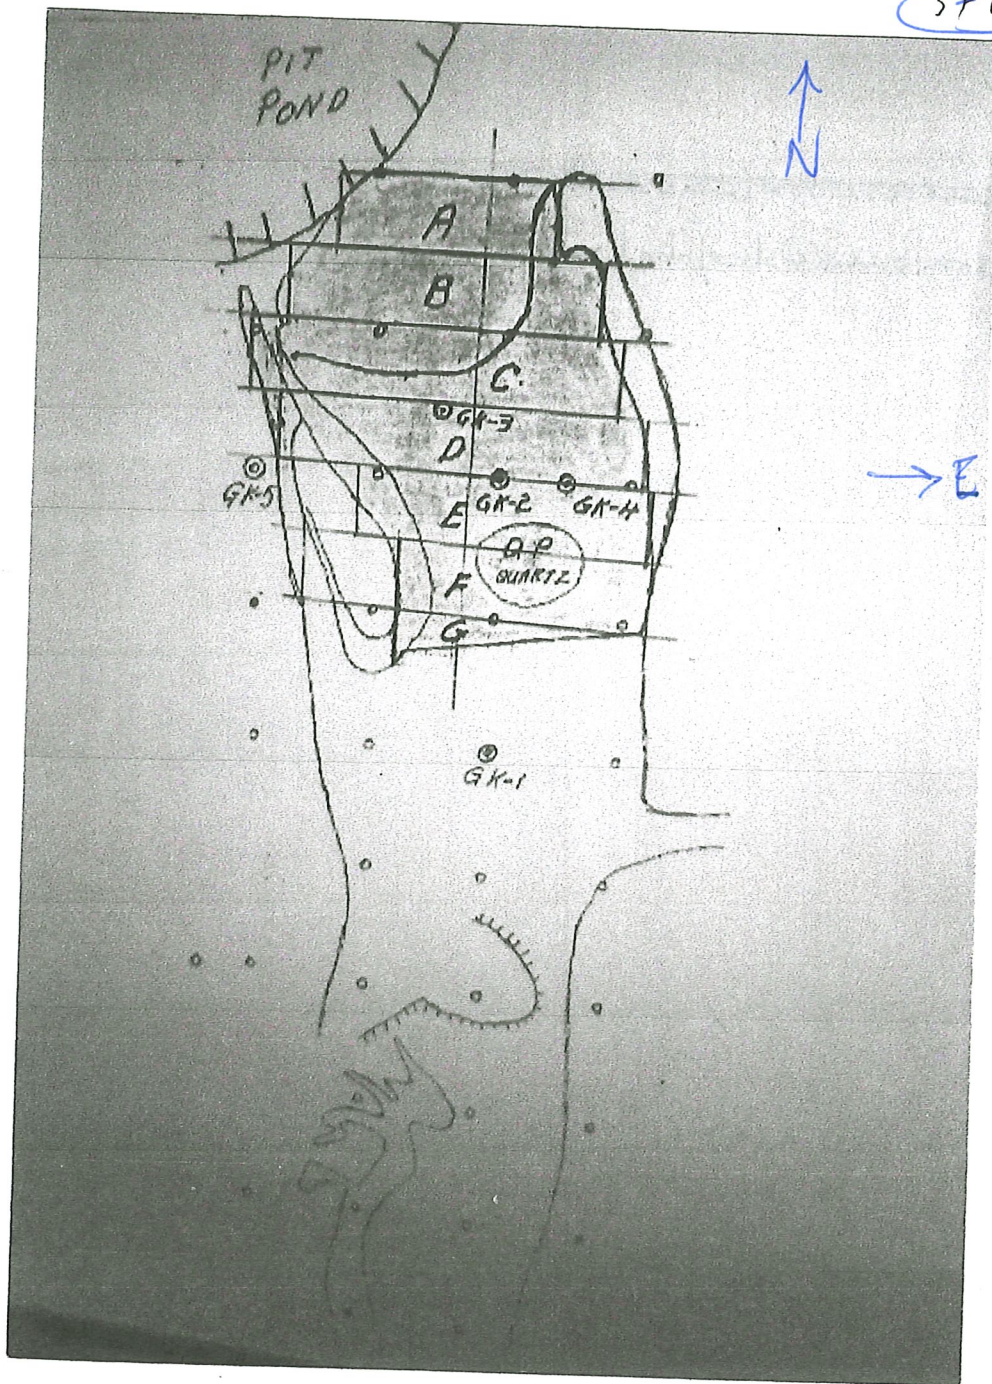 PIT
POND
N
A
B
C.
GK-3
D
GK-5
GK-2
GK-4
E
E
QUARTZ
F
G
GK-1